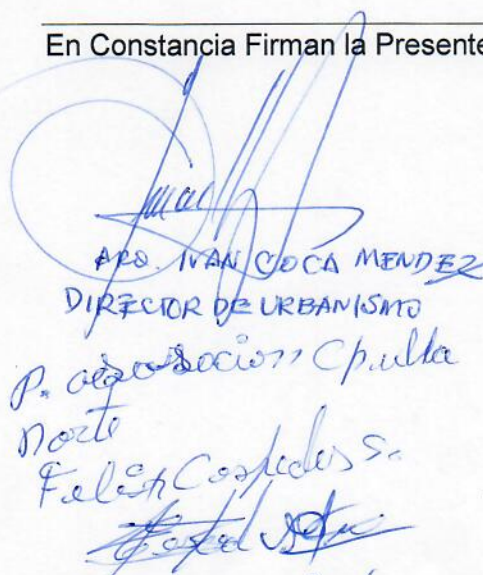 En Constancia Firman la Presente
ARQ. IVAN COCA MENDEZ
DIRECTOR DE URBANISMO
P. asosocion
Norte
Felix Cespedes S.